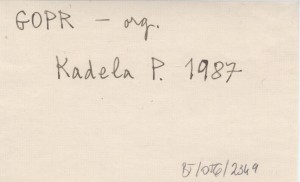 GOPR – org.
Kadela P. 1987
BJ/OTG/2349